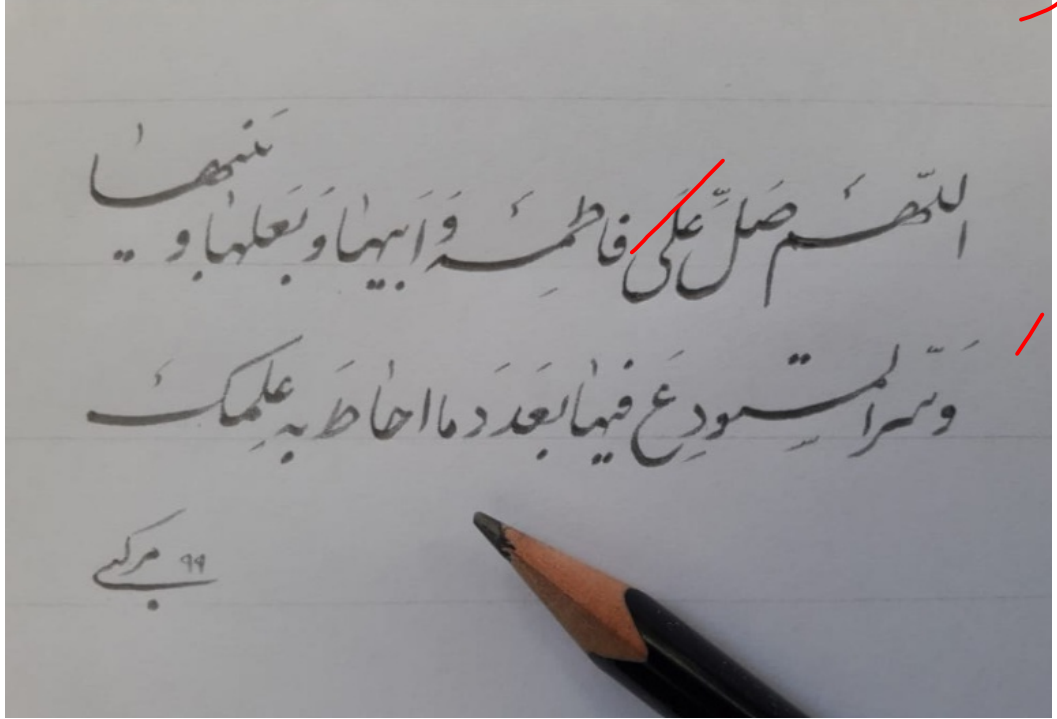 اللّهمَ صَلِّ عَلَى فاطمِه وَ اَبیها وَ بَعلِها و بَنیها
وَ سّرِ المستودِعَ فیها بعَدَدَ ما احاطَ بِه عِلمِکَ
مرکبی ۹۹